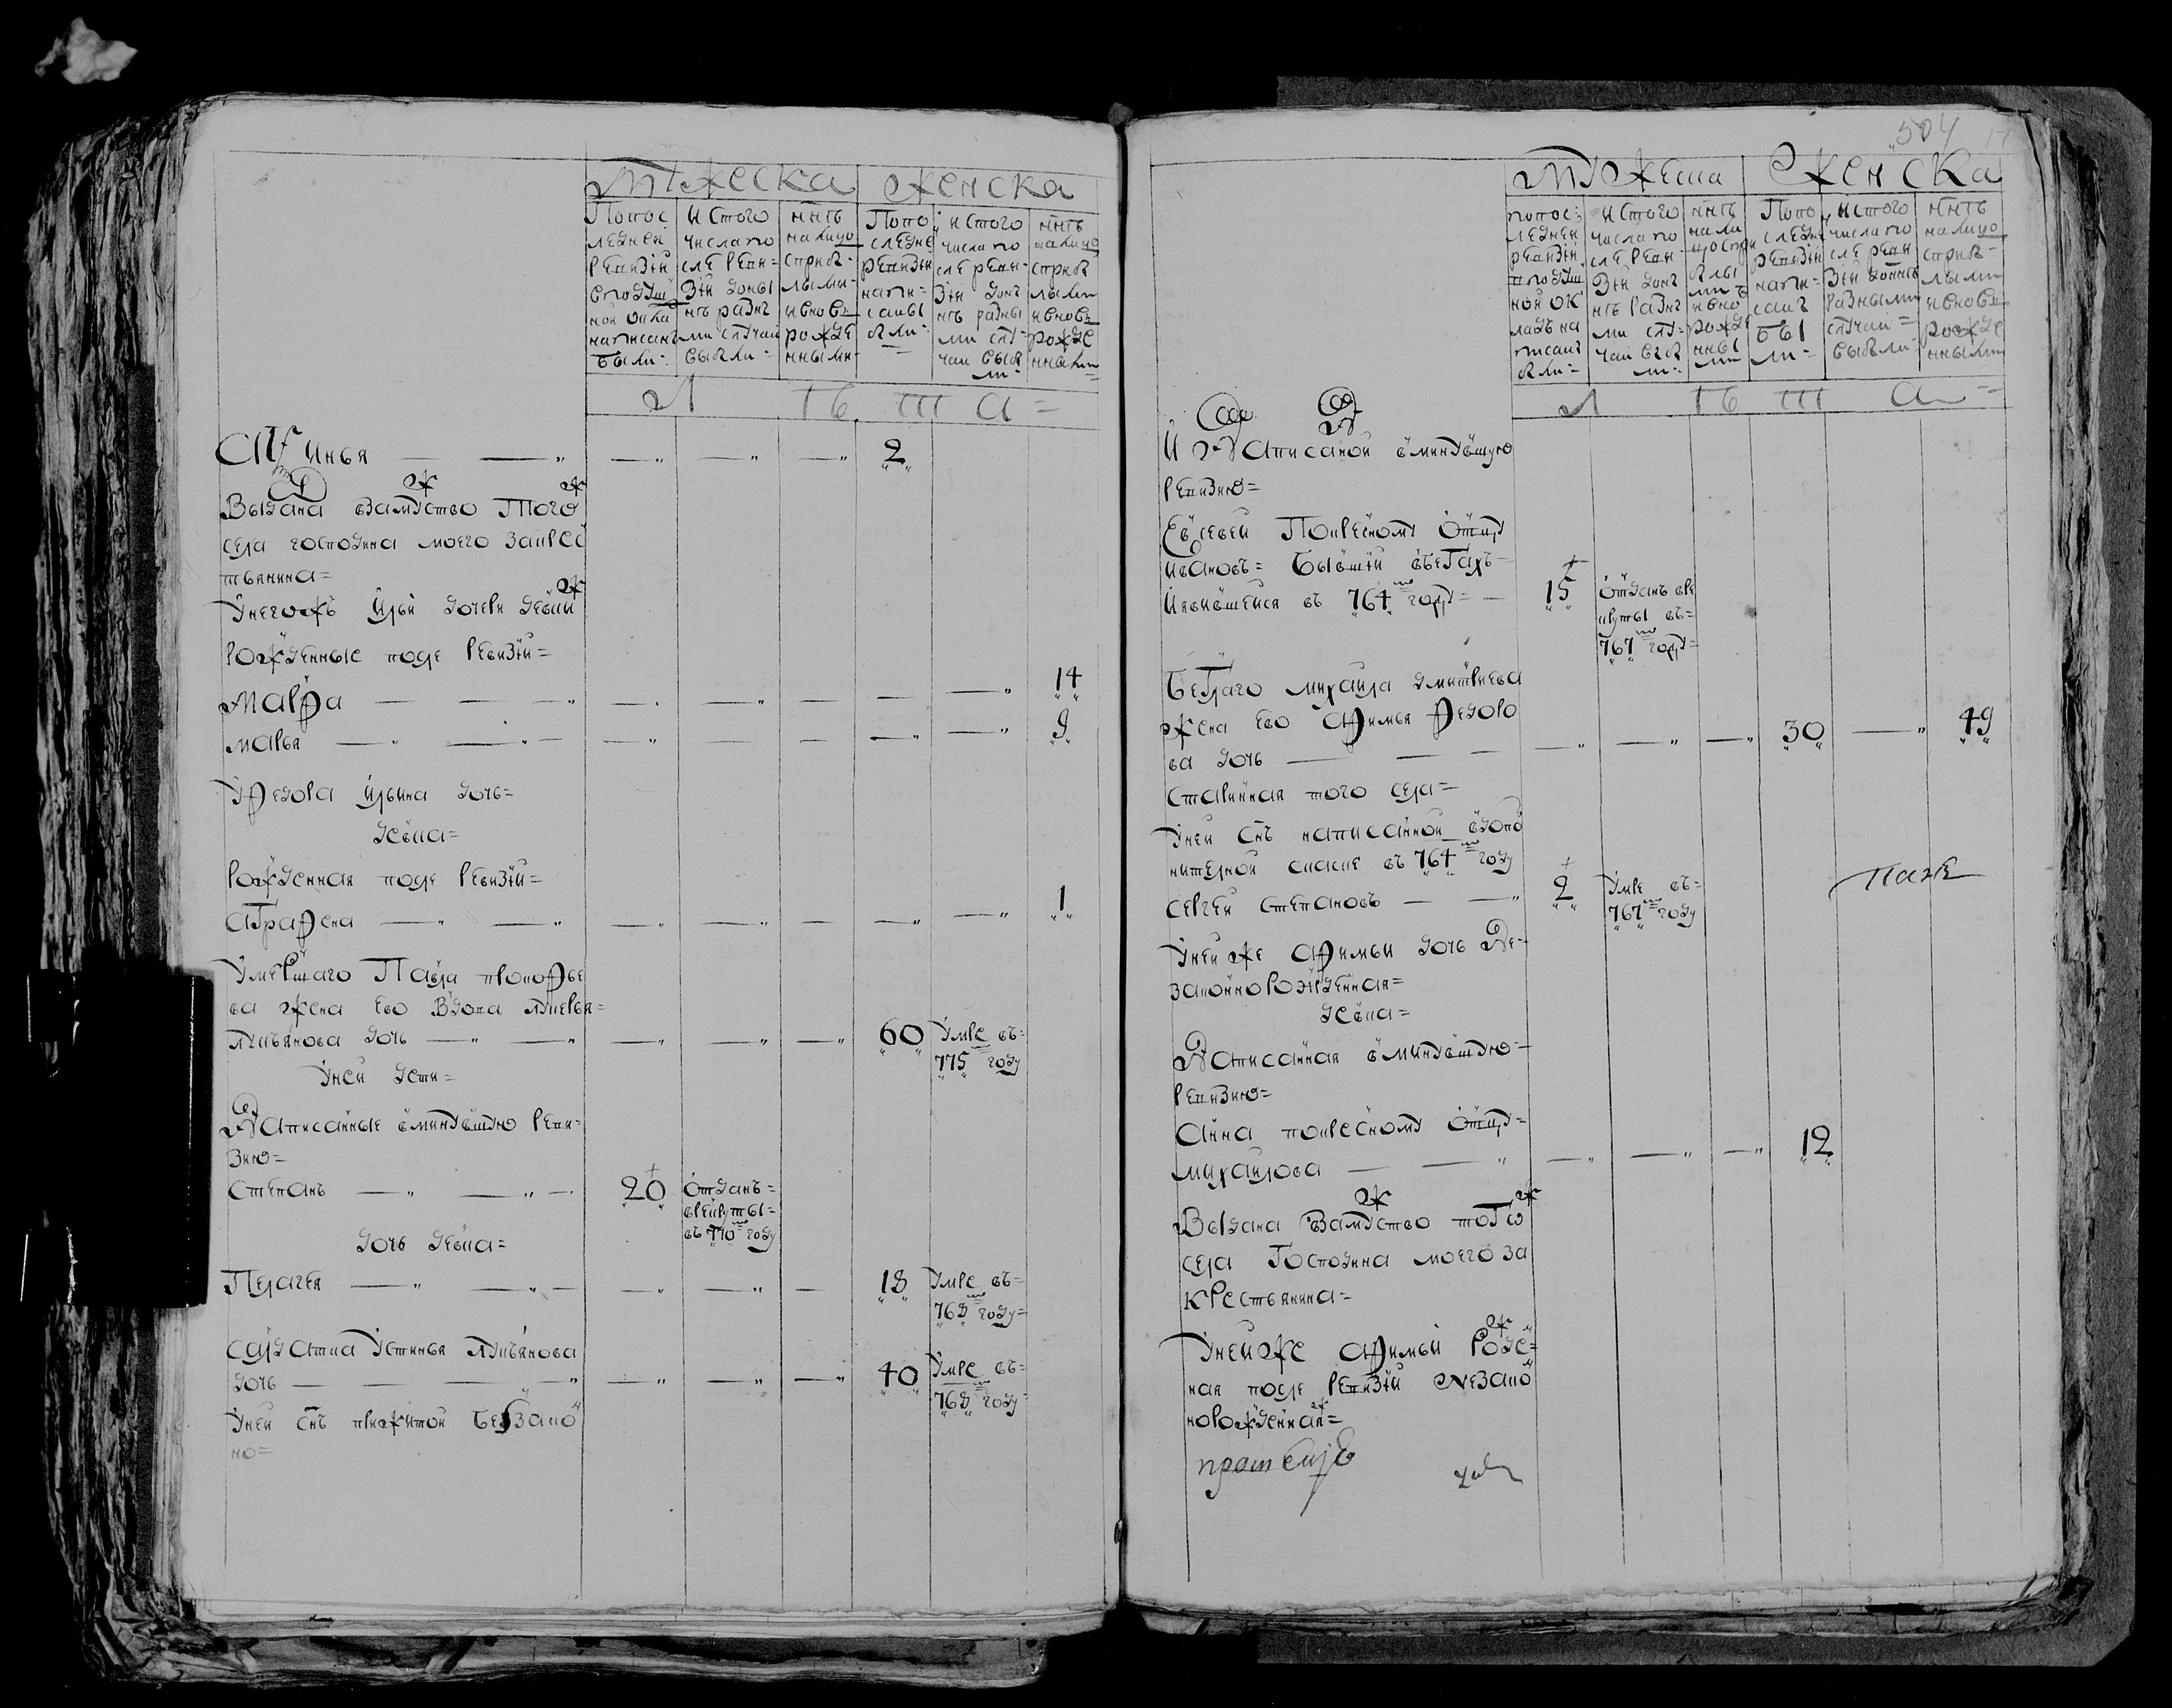 Мужеска Женска
По пос
ледней
ревизии
в подуш
ной окла
написаны
были
и с того
числа по
сле реви=
зии доны
нѣ разны
ми случаи
выбыли=
ннѣ
на лицо
с прибы=
лыми
и вновь
рожде
нными=
По по
следне
ревизии
напи=
саны
были=
и с того
числа по
сле реви=
зии доны
нѣ разны
ми слу=
чаи выбы
ли=
ннѣ
на лицо
с прибы
лыми
и вновь
рожде
нными
Л Ѣ Т А=
2
Выдана взамужство того
села господина моего за крес
тьянина=
У него ж Ильи дочери девки
рожденные после ревизии=
Марфа 14
Марья 9
У Федора Ильина дочь=
девка=
рожденная после ревизии=
Аграфена 1
Умершаго Павла Прокофье
ва жена ево вдова Лукерья=
Лукьянова дочь 60 умре въ=
775 году
У ней дети=
Написанные в минувшую реви=
зию=
Степанъ 20 отданъ=
в рекруты=
въ 770 году
дочь девка=
Пелагея 18 умре въ=
768 году=
Салдатка Устинья Лукьянова
дочь 40 умре въ=
768 году=
У ней снъ прижитой беззако
но=
504
Мужеска Женска
по пос=
ледней
ревизии
в подуш
ной ок
ладъ на
писаны
были=
и с того
числа по
сле реви=
зии доны
нѣ разны
ми слу=
чаи выбы
ли=
ннѣ
на ли
цо с при
былы
ми
и вно
рожде
нны
ми
По по
следне
ревизии
напи=
саны
бы
ли=
и с того
числа по
сле реви
зии доннѣ
разными
случаи=
выбыли=
ннѣ
на лицо
с прибы=
лыми
и вновь
рожде
нными
Л Ѣ Т А=
И написаной в минувшую
ревизию=
Евсевей по кресному отцу
Ивановъ= бывши въ бегахъ=
и явившейся въ 764 году= 15 отданъ в ре
круты въ=
767 году=
Беглаго Михаила Дмитриева
жена ево Афимья Федоро
ва дочь 30 49
Старинная того села=
У ней снъ написанной в допо
нителной скаске въ 764 году
Сергей Степановъ 2 умре въ=
767 году
У ней же Афимьи дочь не=
законнорожденная=
девка=
Написанная в минувшую=
ревизию=
Анна по кресному отцу=
Михаилова 12
Выдана взамужство того
села господина моего за
крестьянина=
У ней же Афимьи рожде=
ная после ревизии незако
норожденная=